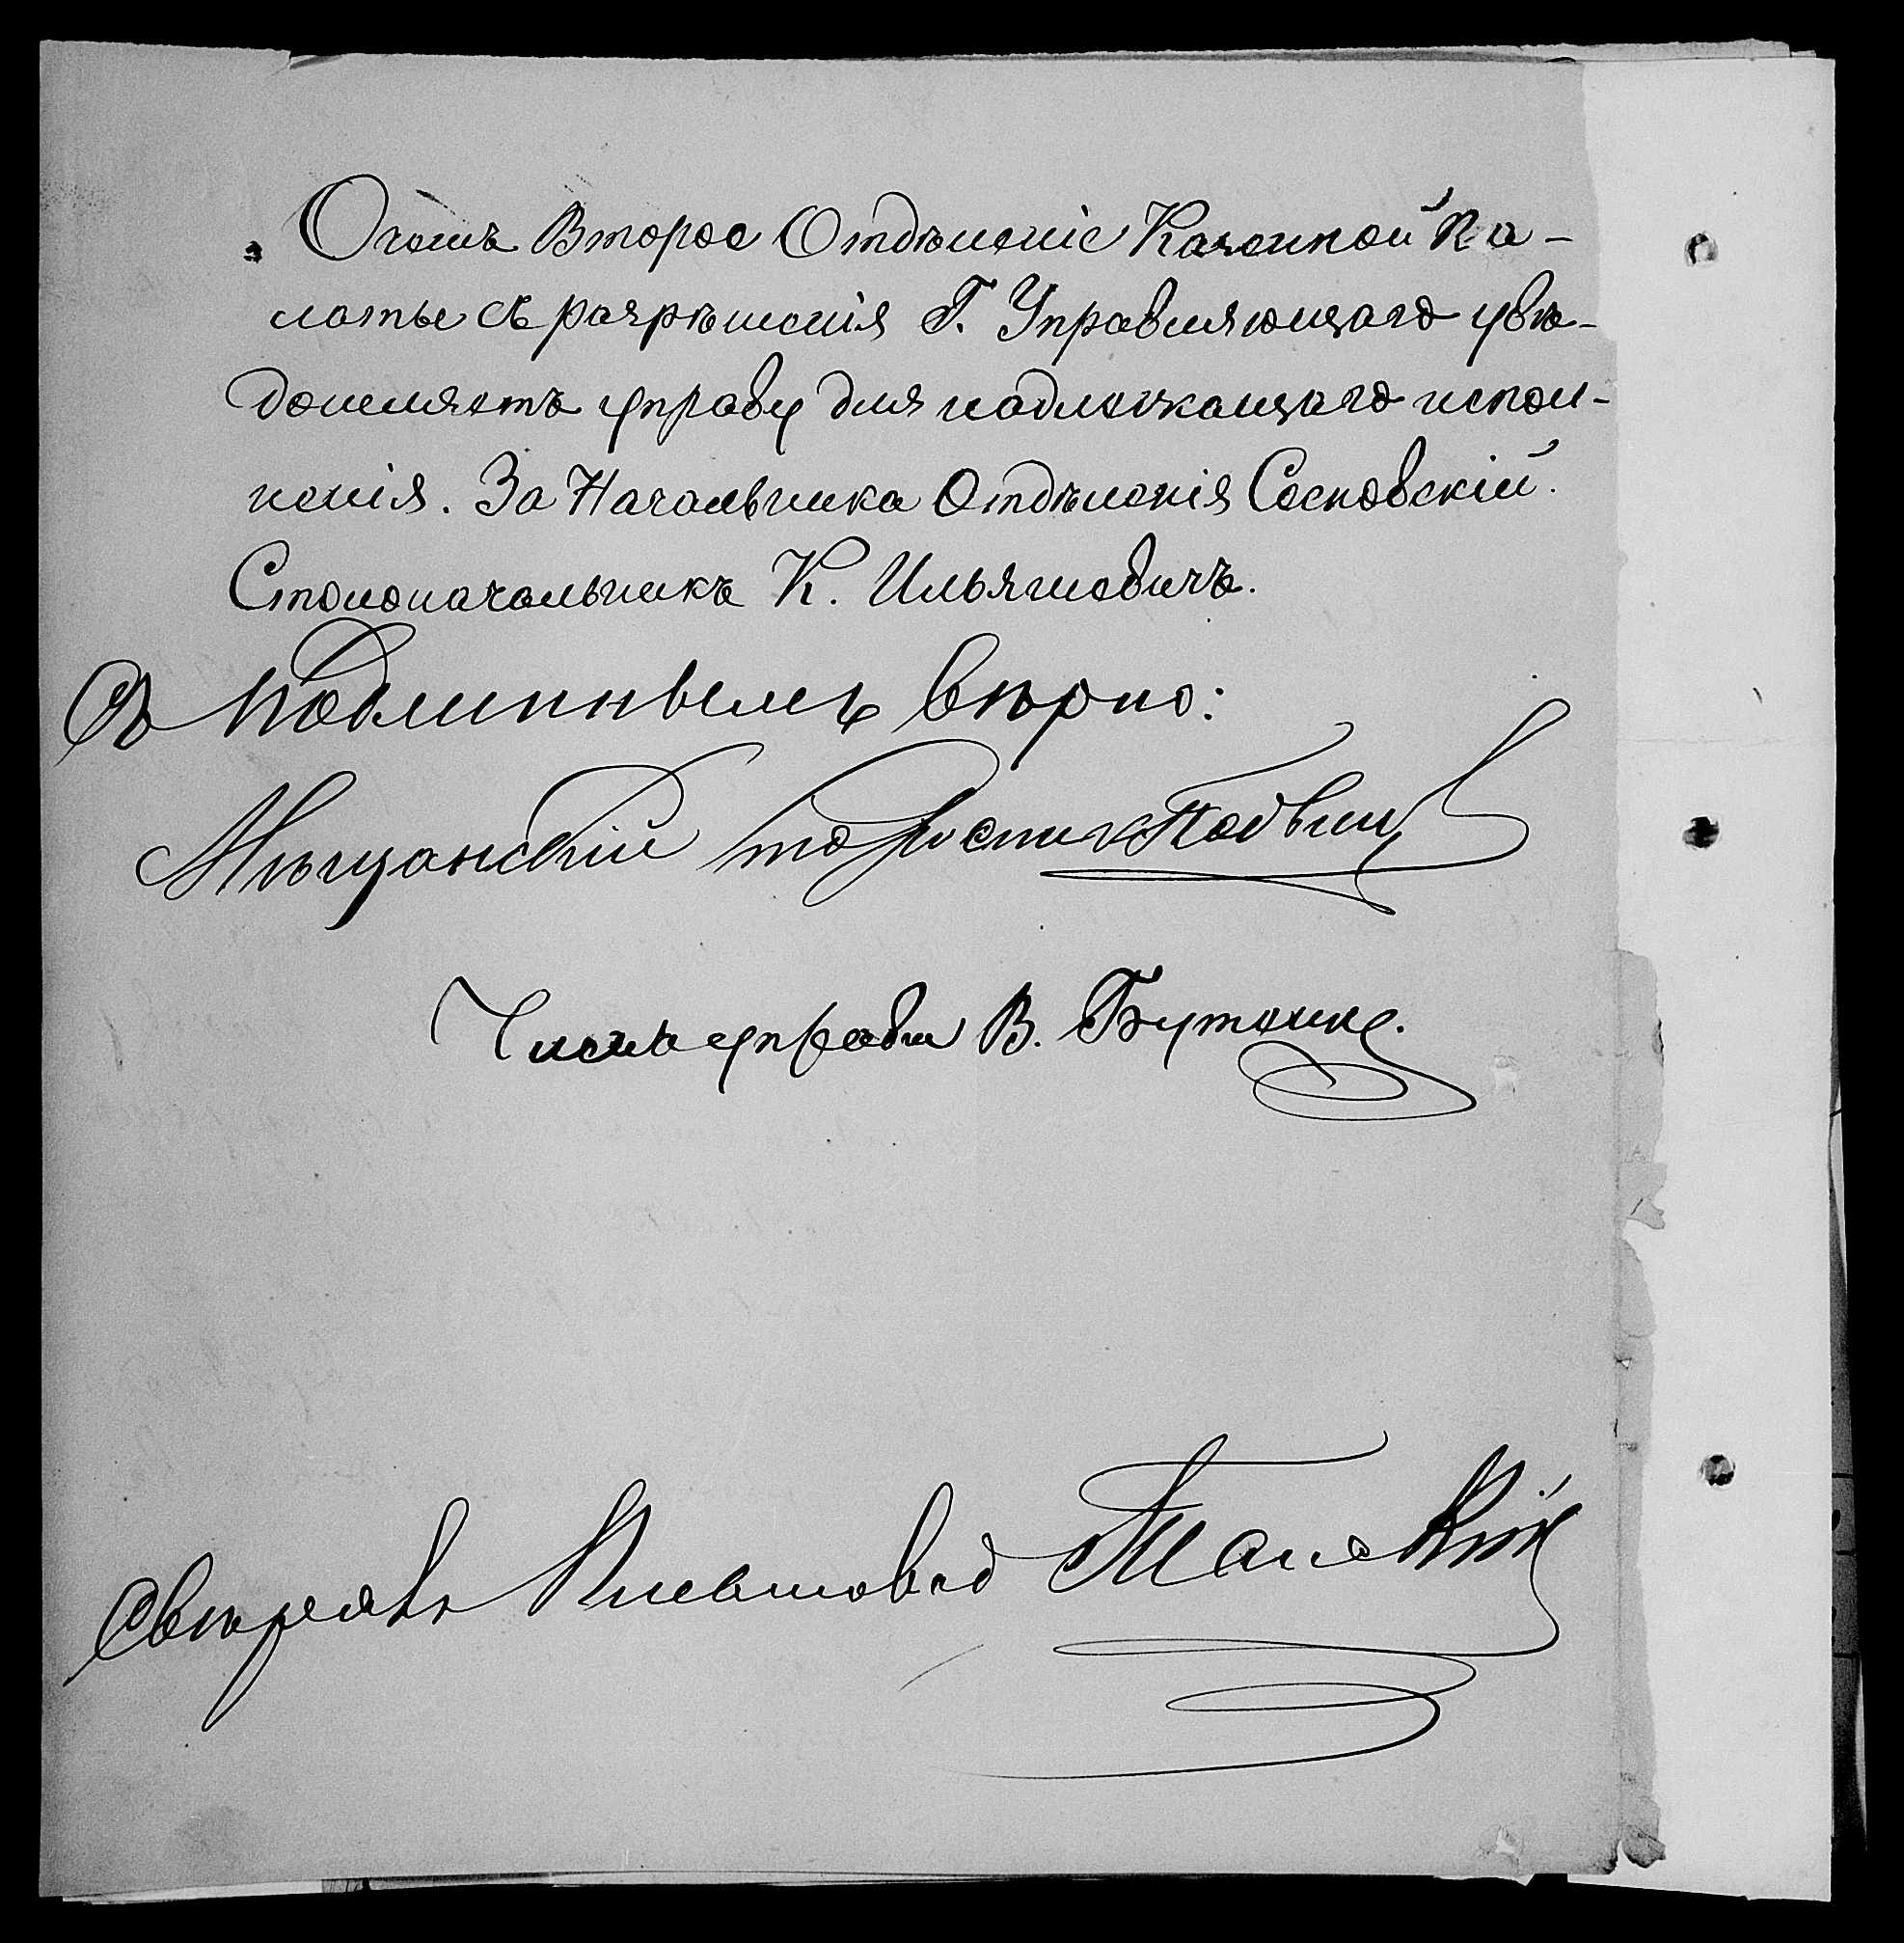 О чемъ Второе Отдѣленіе Казенной Па-
латы съ разрѣшенія Г. Управляющаго увѣ-
домляетъ управу для надлежащаго испол-
ненія. За Начальника Отдѣленія Сосновскій.
Столоначальникъ К. Ильяшевичъ.
Съ подлиннымъ вѣрно:
Мѣщанскій староста
Членъ управы В.
Свѣрялъ Письмовод